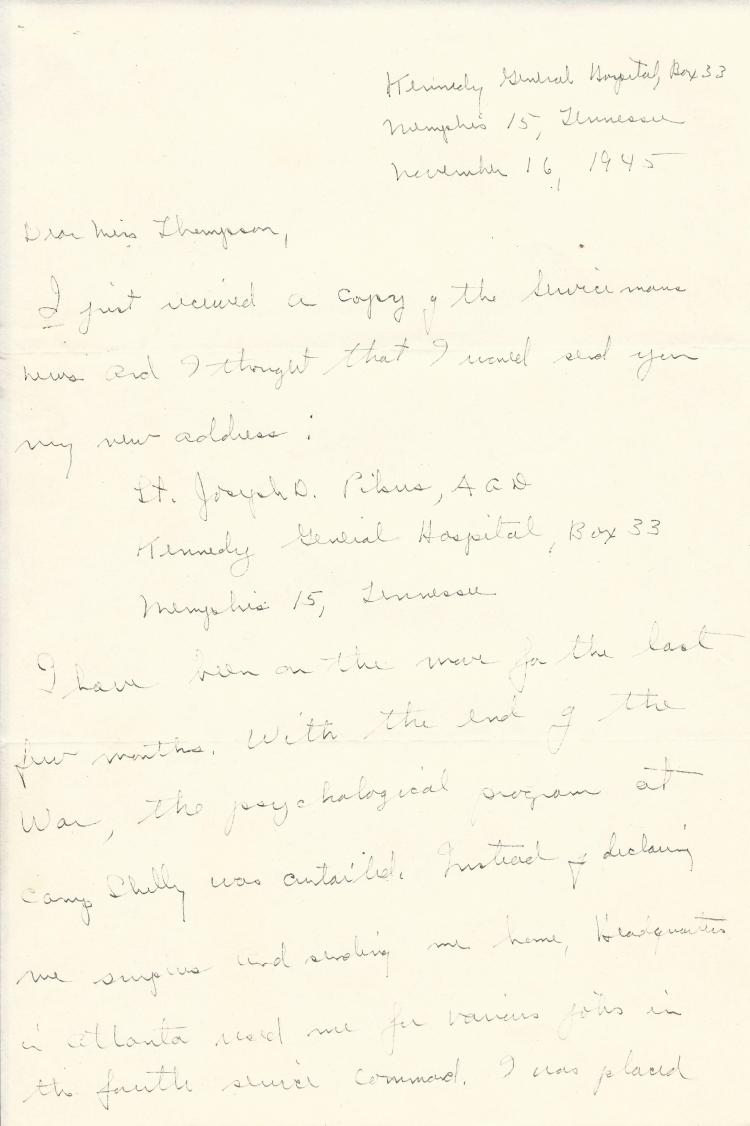 Kennedy General Hospital, Box 33
Memphis 15, Tennessee
November 16, 1945
Dear Miss Thompson,
I just received a copy of the Servicemans
News and I thought that I would send you
my new address:
Lt. Joseph D. Pikus, AGD
Kennedy General Hospital, Box 33
Memphis 15, Tennessee
I have been on the move for the last
few months. With the end of the
War, the psychological program at
Camp Shelly was curtailed. Instead of declaring
me surplus and sending me home, Headquarters
in Atlanta used me for various jobs in
the fourth service command. I was placed